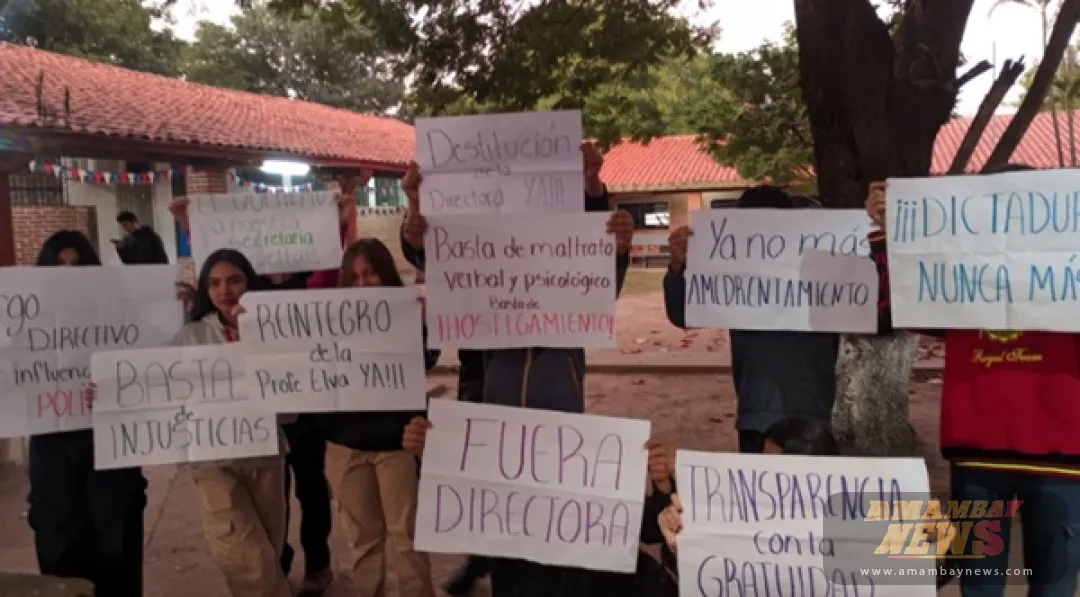 Destitución
de la
Directora YA!!!
Basta de maltrato
verbal y psicológico
Basta de
¡HOSTIGAMIENTO!
a nuestra
secretaria
REINTEGRO
de la
Profe Elva YA!!!
DIRECTIVO
influenc
POLI
BASTA
de
INJUSTICIAS
Ya no más
AMEDRENTAMIENTO
¡¡¡DICTADUR
NUNCA MÁS
Royal Team
FUERA
DIRECTORA
TRANSPARENCIA
con la
GRATUIDAD
AMAMBAY
NEWS
www.amambaynews.com